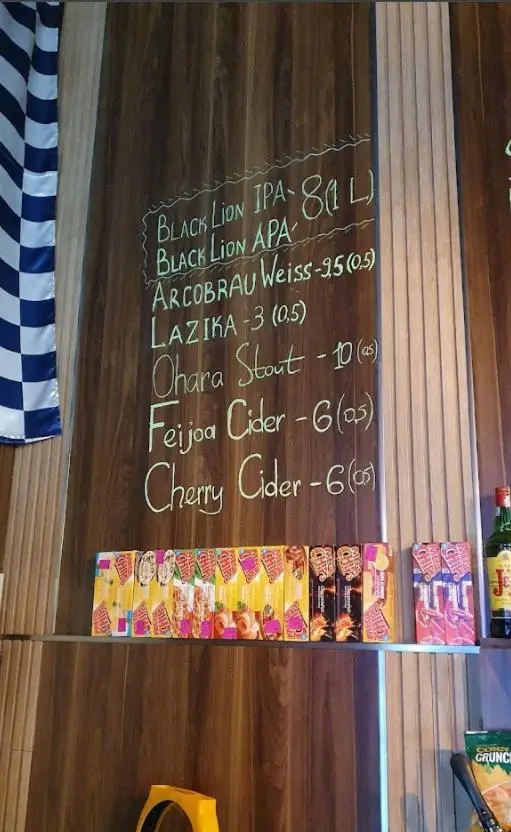 BLACK LION IPA - 8(1 L)
BLACK LION APA
ARCOBRAU Weiss - 9,5 (0,5)
LAZIKA - 3 (0,5)
Ohara Stout - 10 (0,5)
Feijoa Cider - 6 (0,5)
Cherry Cider - 6 (0,5)
J&B
CORN
CRUNC